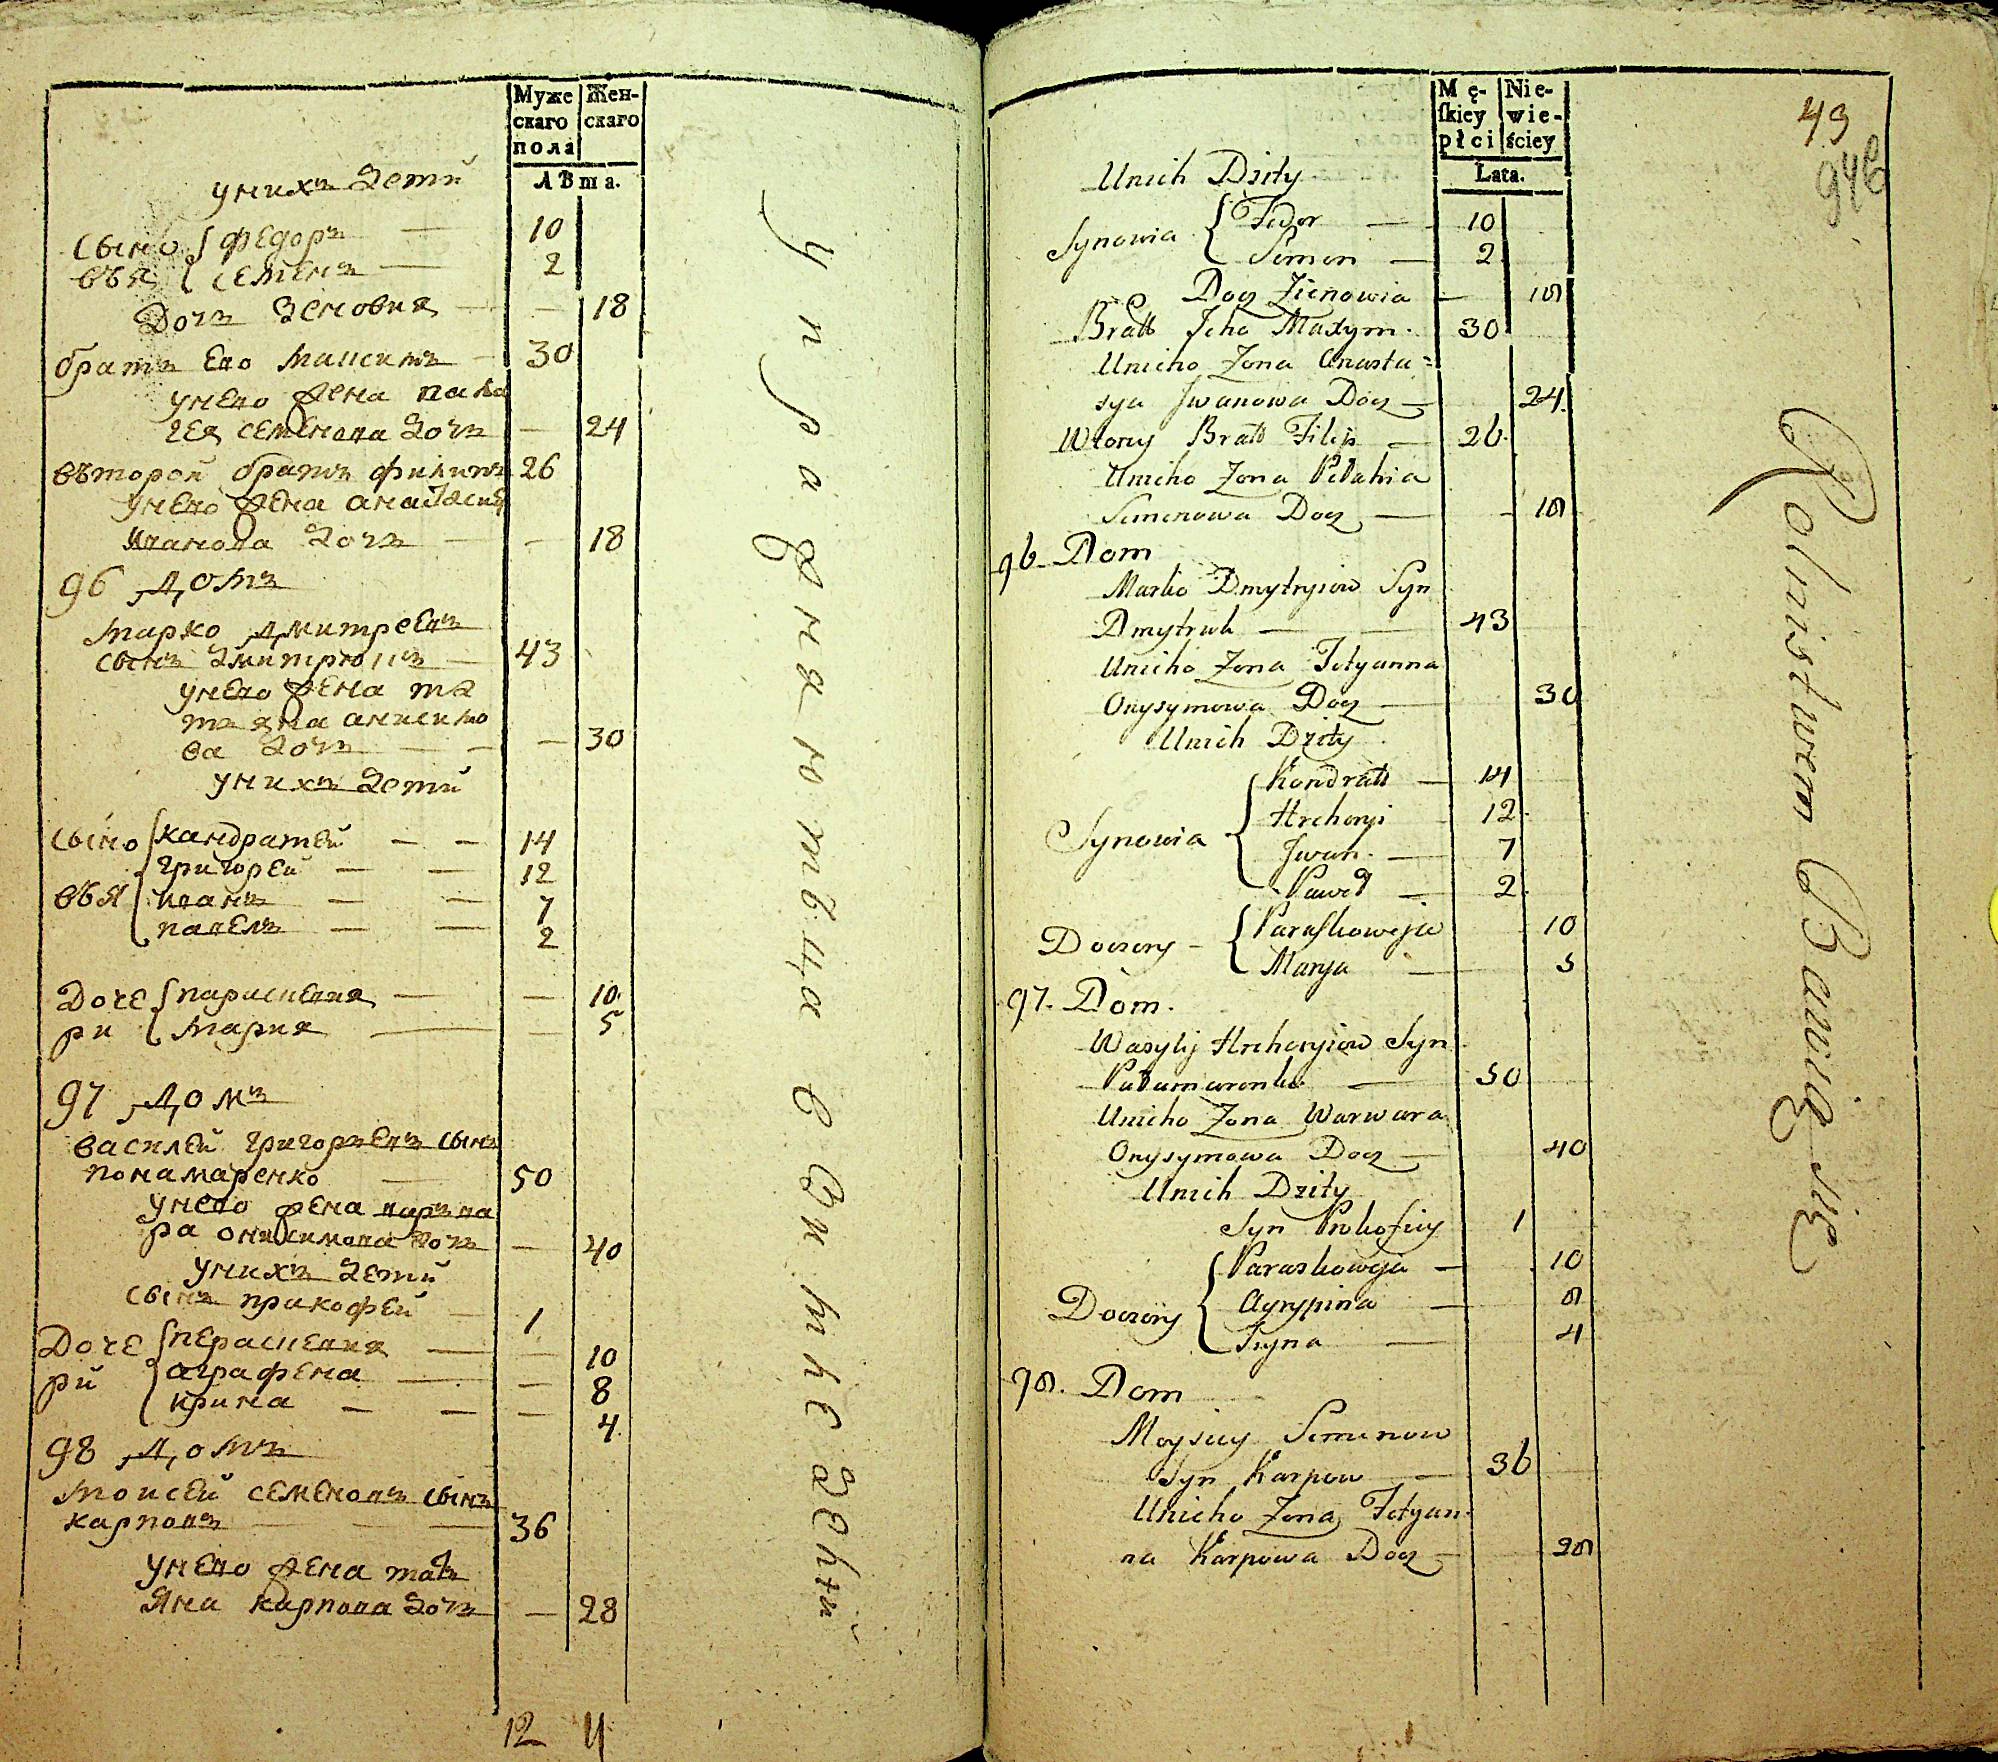 Муже
скаго
пола
Жен-
скаго
лѣта.
унихъ Дети
сыно
вья
федоръ — 10
семенъ — 2
Дочь Зеновия — — 18
братъ Его максимъ — 30
унего жена пала
гея семенова дочь — 24
въторой братъ филипъ 26
унего жена анастасия
Иванова дочь — — 18
96 домъ
марко дмитревъ
сынъ дмитрюкъ — 43
унего жена та
тъяна анисимо
ва дочь — — — 30
унихъ дети
сыно
вья
кандратей — — 14
григорей — — 12
иванъ — — 7
павелъ — — 2
доче
ри
парасневия — — 10
мария — — 5
97 домъ
василей григоръевъ сынъ
понамаренко — 50
унего жена варъва
ра онисимова дочь — 40
унихъ дети
сынъ пракофей — 1
доче
ри
перасневия — — 10
аграфена — — 8
ирина — — — 4
98 домъ
моисей семеновъ сынъ
карповъ — — — 36
унего жена татъ
яна карпова дочь — 28
12 11
упражняютъца в
дети
Mę-
ſkiey
płci
Nie-
wie-
ściey
Lata.
43
Unich Dzity
Synowia
Fedor — 10
Semen — 2
Docz Zienowia — 18
Bratt Jeho Maxym. 30
Unieho Zona Anasta=
sya Jwanowa Docz — 24.
Wtory Bratt Filip — 26.
Unieho Zona Pełahia
Semenowa Docz — - 18
96. Dom
Marko Dmytryiow Syn
Dmytruk — — 43
Unieho Zona Tetyanna
Onysymowa Docz — 30
Unich Dzity
Synowia
Kondratt — 14
Hrehory 12.
Jwan. — 7
Paweł — 2.
Doczery -
Paraskoweja 10
Marya — 5
97. Dom.
Wasylij Hrehoryiow Syn
Pałamarenko — 50
Unieho Zona Warwara
Onysymowa Docz — 40
Unich Dzity
Syn Prokofiey 1
Doczery
Paraskoweja — 10
Agrypina — 8
Jryna — 4
98. Dom
Moysiey Semenow
Syn Karpow — 36
Unieho Zona Tetyan-
na Karpowa Docz — 28
Rolnistwem Bawią się